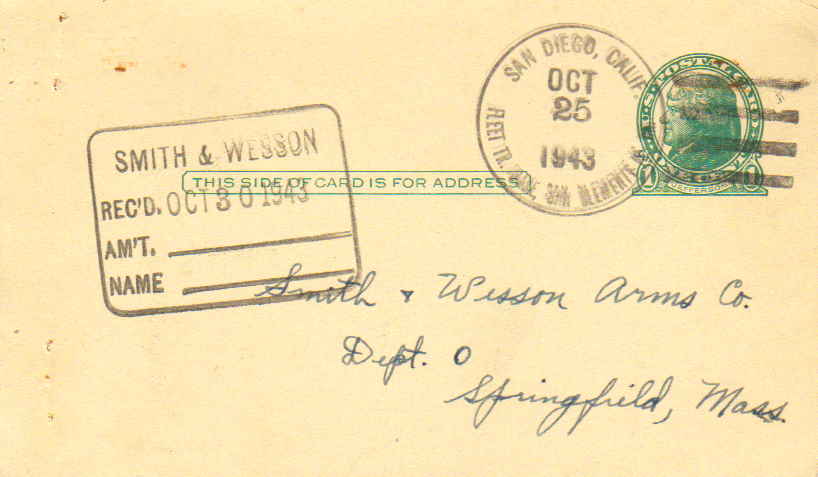 SAN DIEGO, CALIF.
OCT
25
1943
FLEET TR. SAN CLEMENTE
U.S. POSTAL CARD
JEFFERSON
SMITH & WESSON
REC'D. OCT 30 1943
AM'T.
NAME
THIS SIDE OF CARD IS FOR ADDRESS
Smith & Wesson Arms Co.
Dept. O
Springfield, Mass.